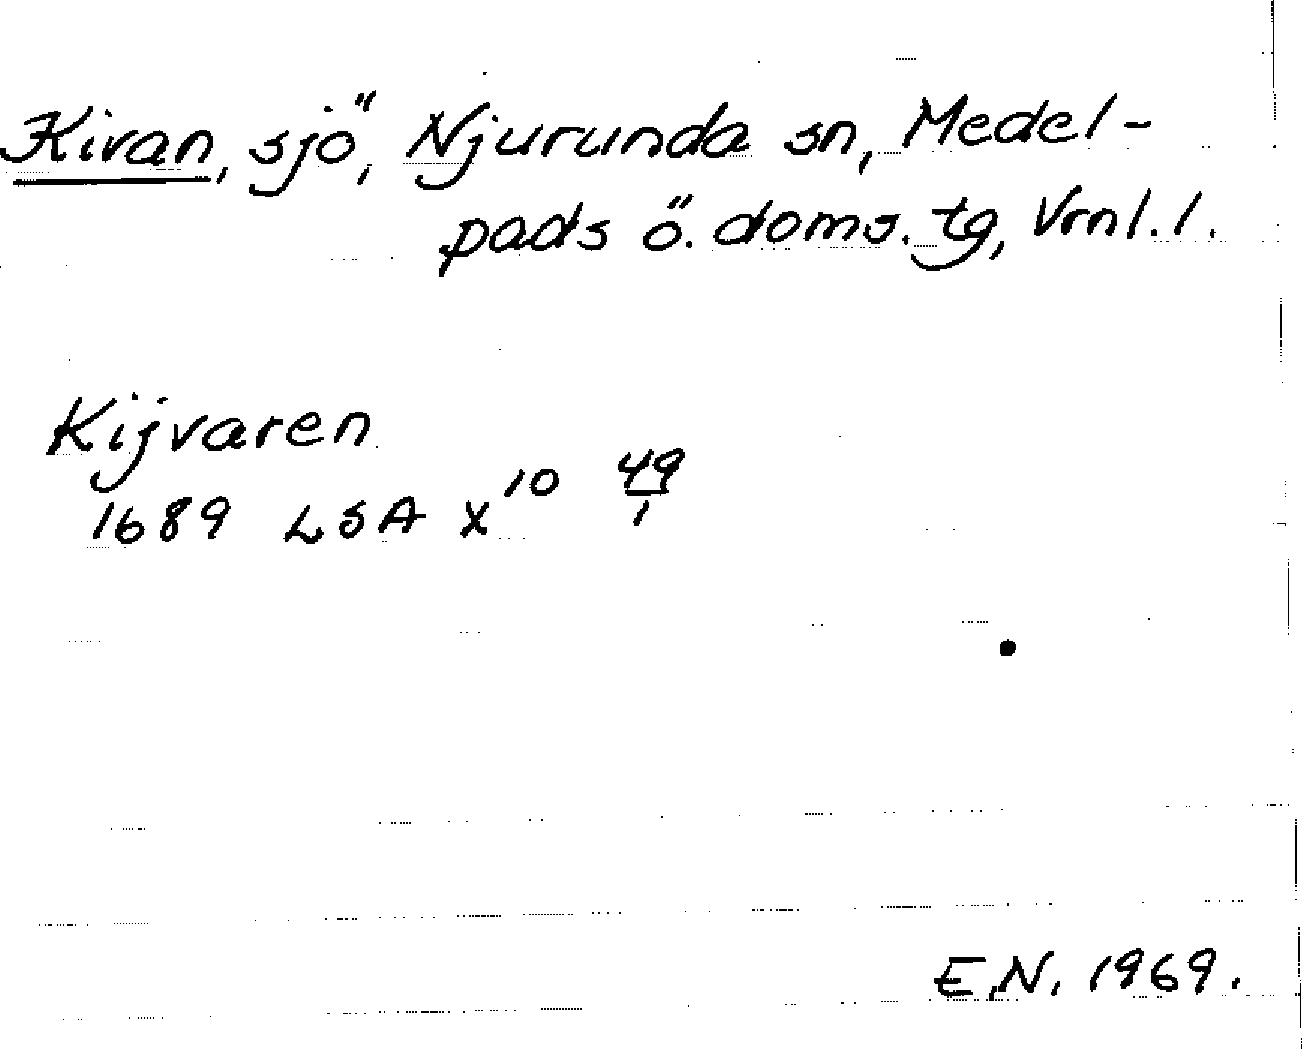 Kivan, sjö, Njurunda sn, Medel-
pads ö. doms. tg, Vrnl. l.
Kijvaren
1689 LSA X¹⁰ 49/1
E.N. 1969.